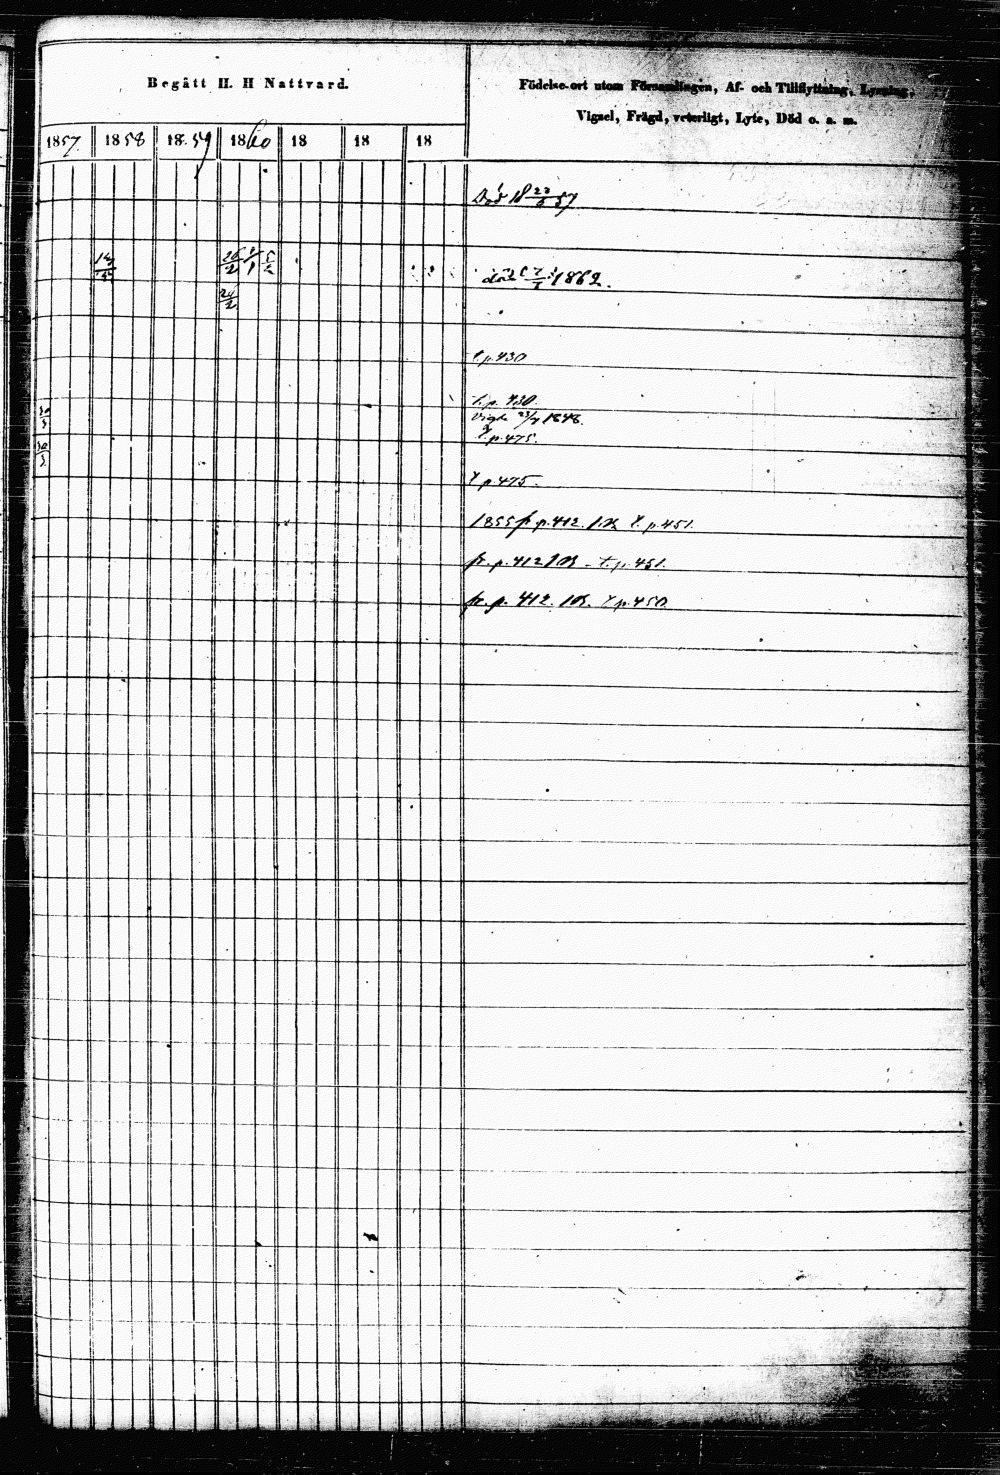 Begått H. H Nattvard.
Födelse-ort utom Församlingen, Af- och Tillflyttning, Lysning,
Vigsel, Frägd, veterligt, Lyte, Död o. a. m.
1857 1858 18.59 1860 18 18 18
Död 18 23/6 57
26/2
död 1862.
24/2
t. p. 430
t. p. 430.
30/3
vigde 23/7 1848.
t. p. 475.
30/3
t. p. 475.
1855 fr p. 412. t. p. 451.
fr. p. 412 t. p. 451.
fr. p. 412. t. p. 450.